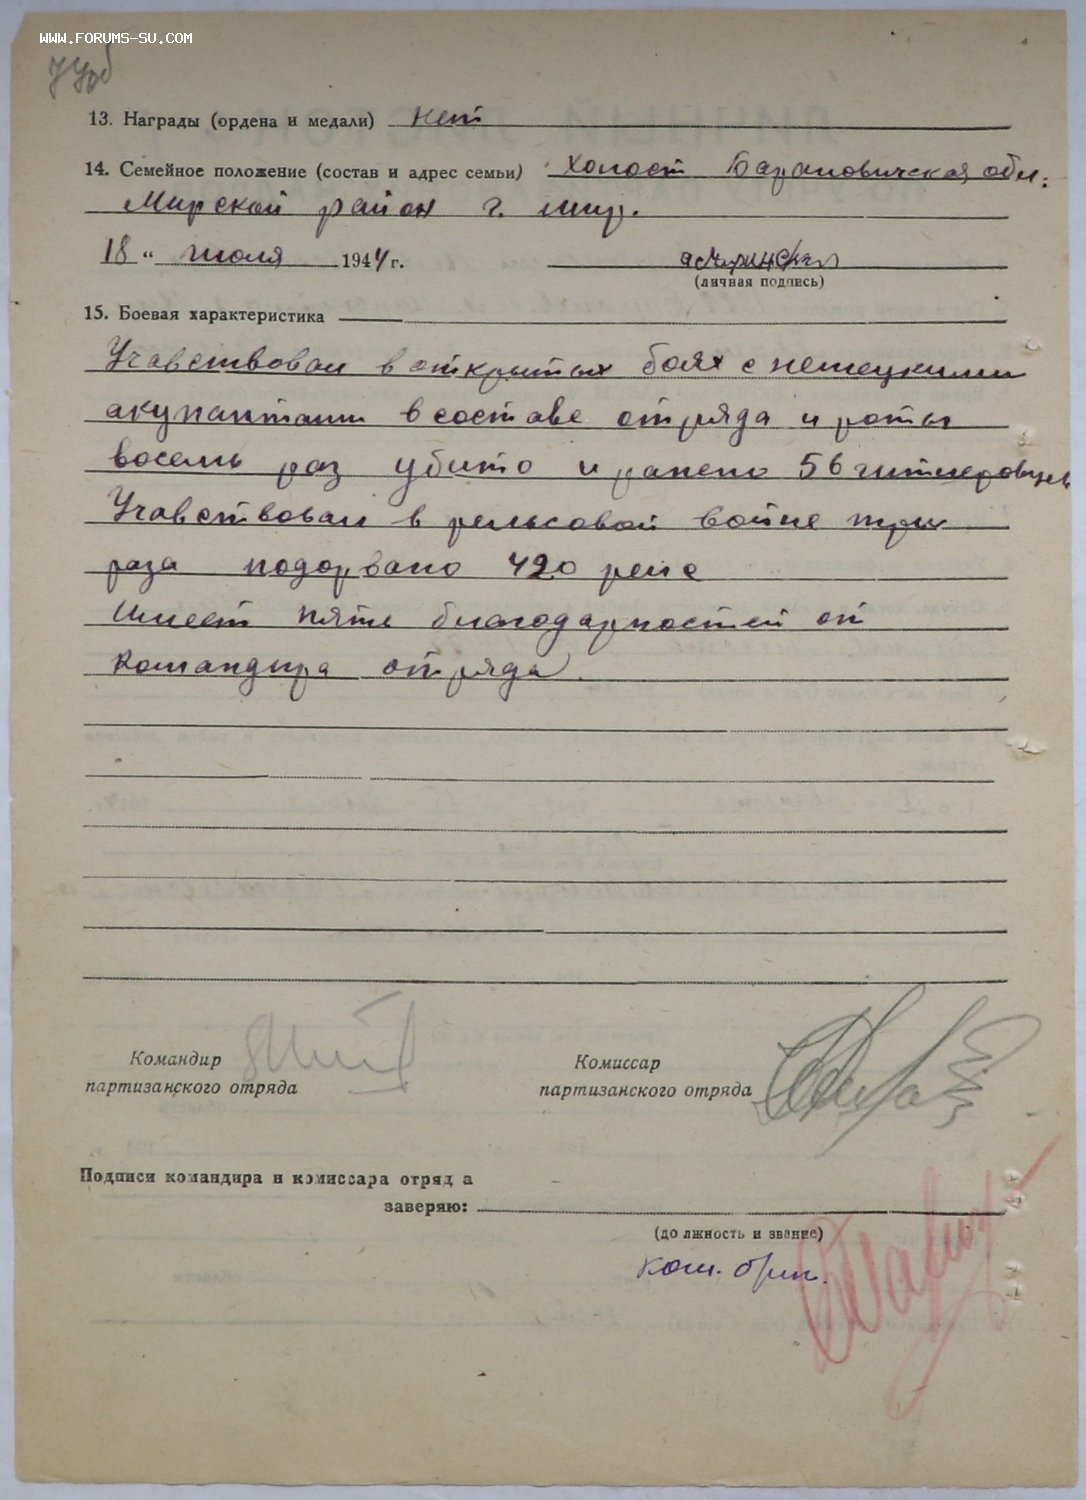 WWW.FORUMS-SU.COM
13. Награды (ордена и медали) нет
14. Семейное положение (состав и адрес семьи) Холост Барановичская обл.
Мирский район г. Мир.
18 " июля 1944 г.
(личная подпись)
15. Боевая характеристика
Учавствовал в открытых боях с немецкими
акупантами в составе отряда и роты
восемь раз убито и ранено 56 гитлеровцев
Учавствовал в рельсовой войне три
раза подорвано 420 рельс
Имеет пять благодарностей от
командира отряда
Командир
партизанского отряда
Комиссар
партизанского отряда
Подписи командира и комиссара отряд а
заверяю:
(должность и звание)
ком. бриг.